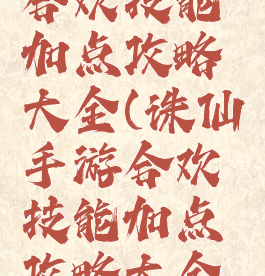 合欢技能
加点攻略
大全(诛仙
手游合欢
技能加点
攻略大全